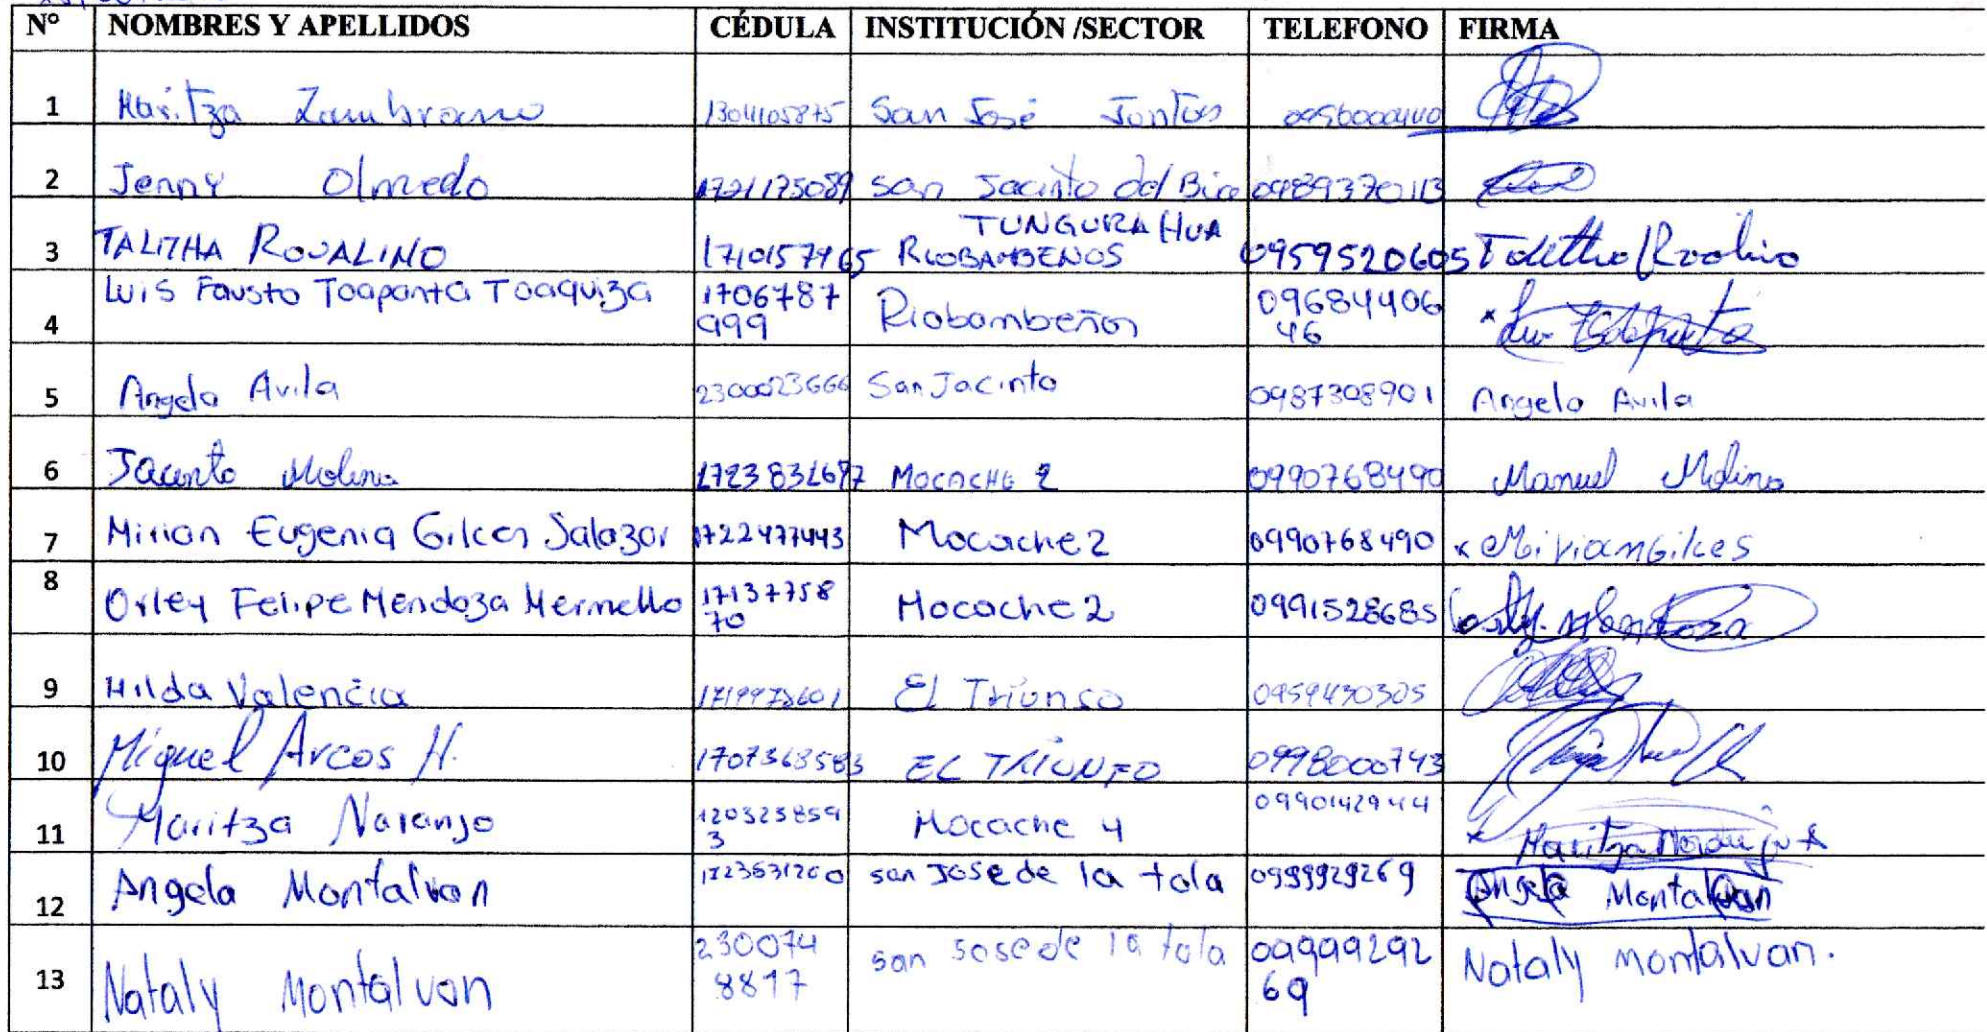 N° NOMBRES Y APELLIDOS CÉDULA INSTITUCIÓN /SECTOR TELEFONO FIRMA
1 Maritza Zambrano 1304105875 San José Juntas
2 Jenny Olmedo 1721175089 San Jacinto del Bua 0989370113
3 TALITHA ROJALINO 1710157965 TUNGURAHUA RIOBAMBEÑOS 0959520605
4 Luis Fausto Toapanta Toaquiza 1706787999 Riobambeños 0968440646
5 Angela Avila 2300023666 San Jacinto 0987308901 Angela Avila
6 Jacinto Molina MOCACHE 2 0990768490 Manuel Molina
7 Mirian Eugenia Gilces Salazar 1722477443 Mocache 2 0990768490 x Miriam Gilces
8 Orley Felipe Mendoza Mermello 1713775870 Mocache 2 0991528685 Mendoza
9 Hilda Valencia El Triunfo 0959430305
10 Miguel Arcos H. 1707368583 EL TRIUNFO 0998000743
11 Maritza Naranjo 1203238593 Mocache 4 0990142944 x Maritza Naranjo
12 Angela Montalvan san Jose de la tola 0999929269 Angela Montalvan
13 Nataly Montalvan 2300748817 san Jose de la tola 0999929269 Nataly montalvan.